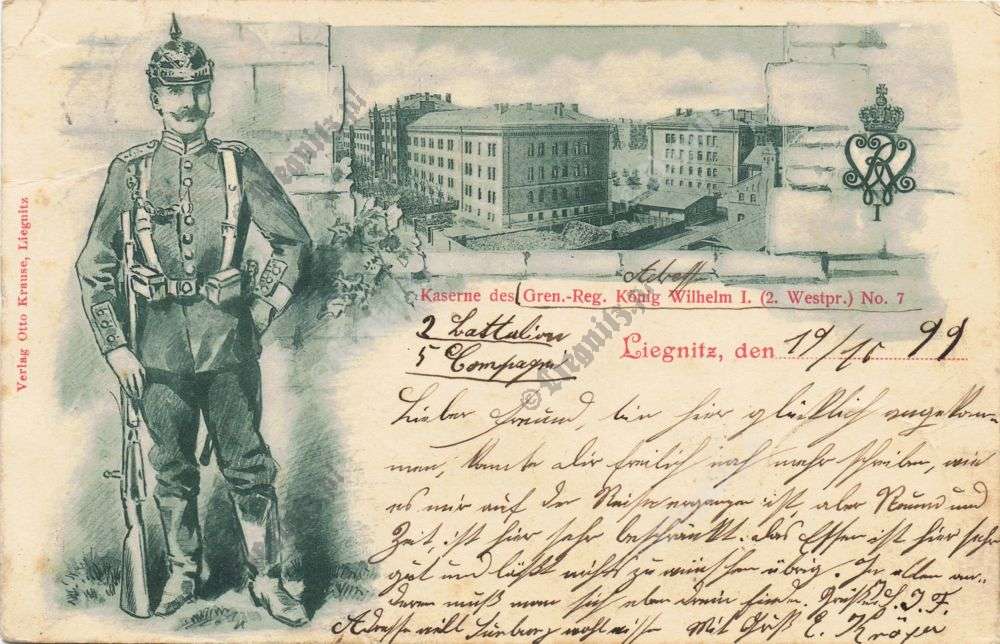 Verlag Otto Krause, Liegnitz
I
Kaserne des Gren.-Reg. König Wilhelm I. (2. Westpr.) No. 7
2 Battalion
5 Compagnie
Liegnitz, den 19/10 99
Lieber Freund, bin hier glücklich angekom-
men, könnte Dir freilich noch mehr schreiben, wie
es mir auf der Reise ergangen ist, aber Raum und
Zeit, ist hier sehr beschränkt. Das Essen ist hier sehr
gut und läßt nichts zu wünschen übrig. In allen an-
deren muß man sich eben drein finden. J. F.
Adresse will wohl wissen Mit Gruß E. Kröger
© Liegnitz.pl